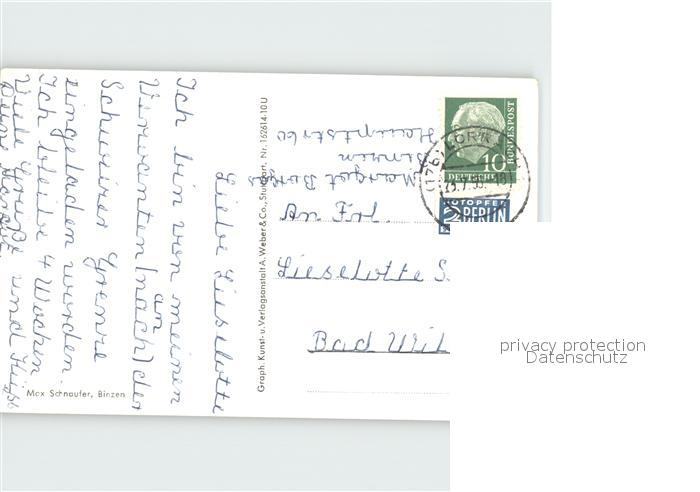 Liebe Lieselotte
Ich bin von meinen
Verwanten (nach) der
an
Schweizer Grenze
eingeladen worden.
Ich bleibe 4 Wochen.
Viele Grüße und Küße
Deine Margot
Max Schnaufer, Binzen
Graph. Kunst- u. Verlagsanstalt A. Weber & Co., Stuttgart, Nr. 152614-10U
Margot
Binzen
Hauptstr 60
10
DEUTSCHE
BUNDESPOST
NOTOPFER
2 BERLIN
An Frl.
Lieselotte S
Bad Wil
privacy protection
Datenschutz